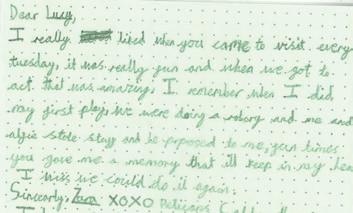 Dear Lucy,
I really liked when you came to visit every
tuesday, it was really fun and when we got to
act that was amazing. I remember when I did
my first play, we were doing a robory and me and
algie stole stuff and he proposed to me, fun times
you gave me a memory that ill keep in my
I wish we could do it again.
Sincerly, Zara XOXO Pelicans